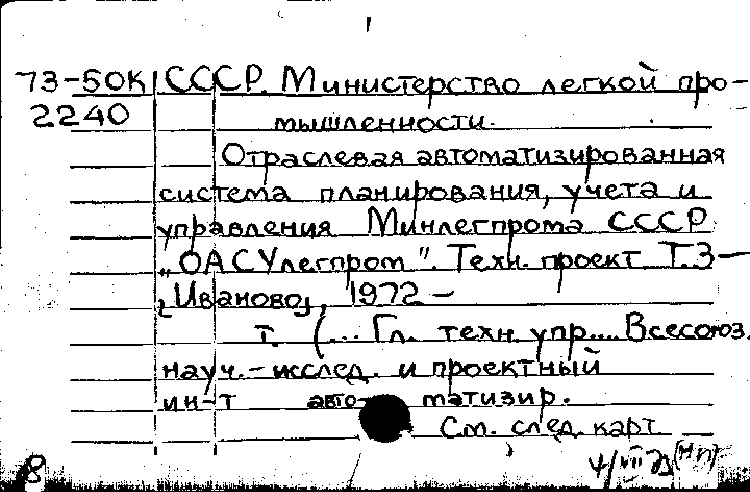 73-50К СССР. Министерство легкой про-
2240 мышленности.
Отраслевая автоматизированная
система планирования, учета и
управления Минлегпрома СССР
„ОАСУлегпром". Техн. проект Т.3—
[Иваново], 1972 —
т. (... Гл. техн. упр.... Всесоюз.
науч.-исслед. и проектный
ин-т автоматизир.
См. след. карт
8